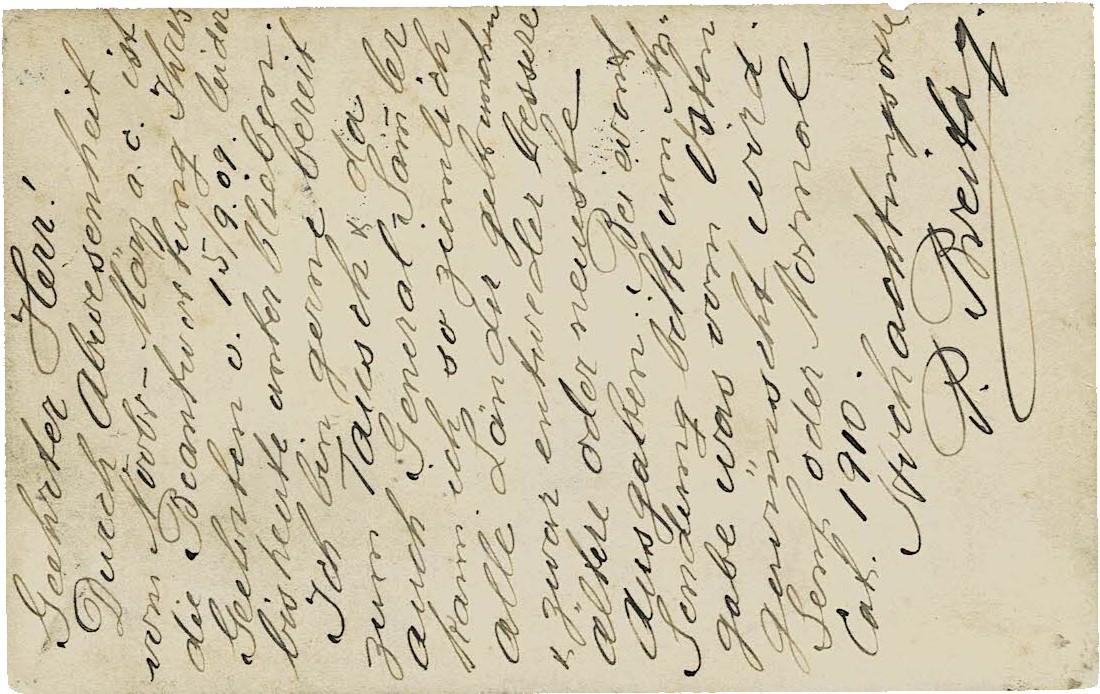 Geehrter Herr!
Durch Abwesenheit
vom Novbr – März a. c. ist
die Beantwortung Ihres
Geehrten v. 15/9.09. leider
bis heute unterblieben.
Ich bin gerne bereit
zum Tausch & da
auch General-Sam̄ler
kann ich so ziemlich
alle Länder gebrauchen
& zwar entweder bessere
ältere oder neuste
Ausgaben. Bei event
Sendung bitte um
gabe was von Osten
gewünscht wird.
Senf oder Normal
Cat. 1910.
Hochachtungsvoll
P. Breitag.